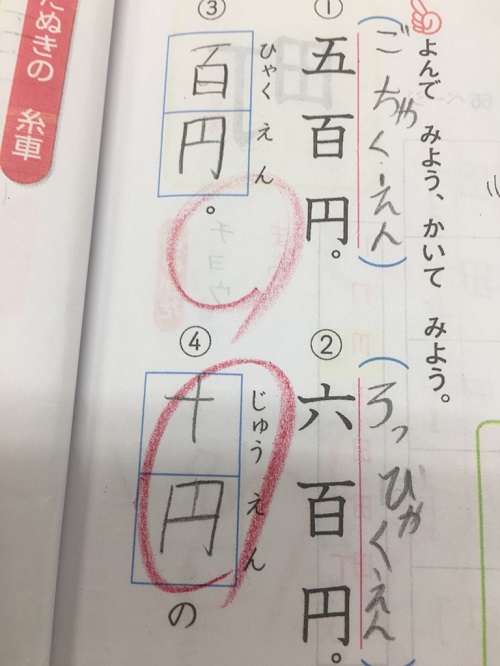 よんで みよう、かいて みよう。
(ごちゃくえん)
① 五百円。
(ろっひゃくえん)
② 六百円。
ひゃく えん
③ 百円。
じゅう えん
④ 十円の
たぬきの 糸車